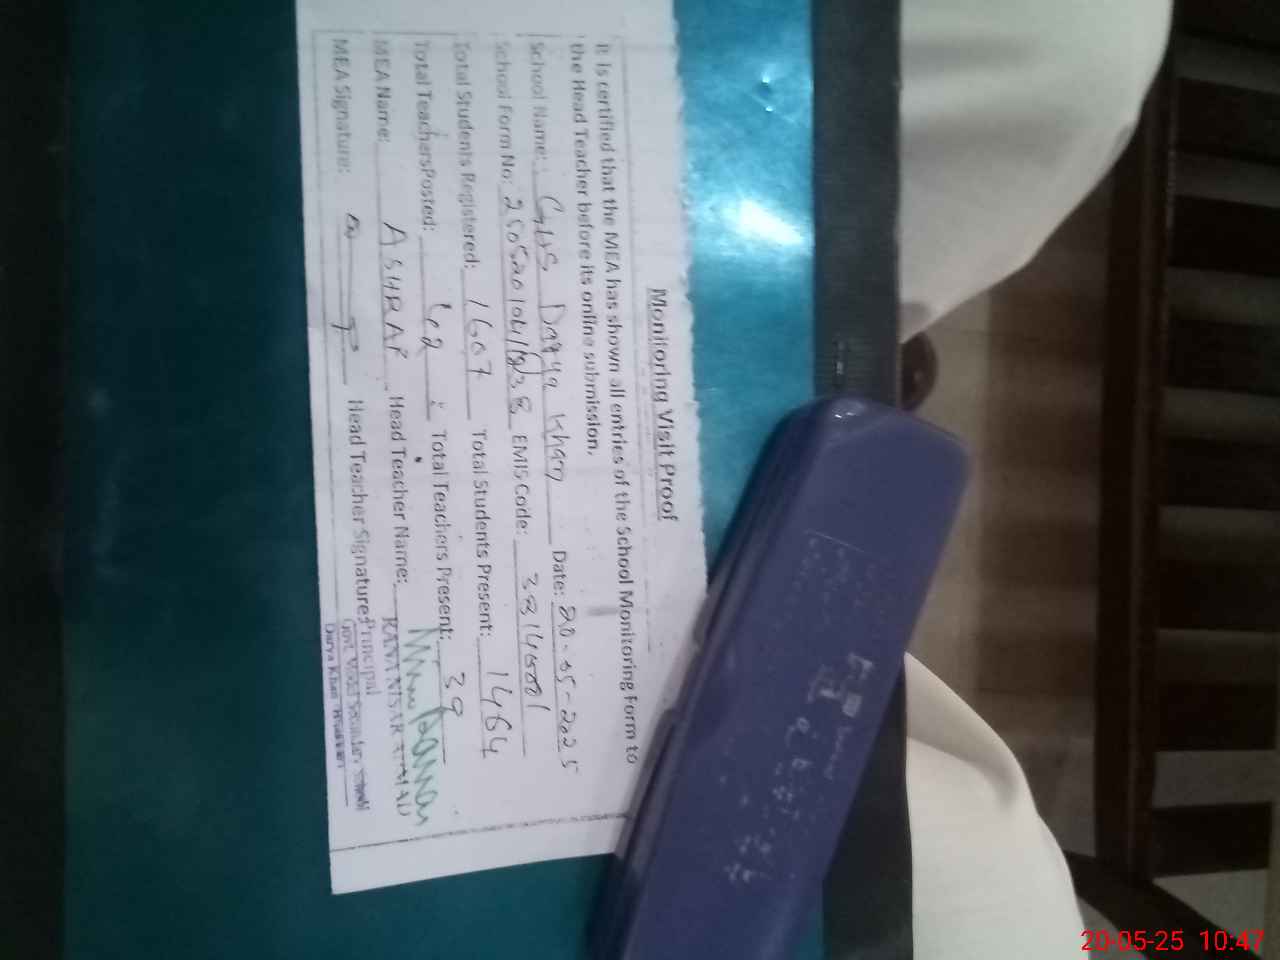 Monitoring Visit Proof
It is certified that the MEA has shown all entries of the School Monitoring Form to
the Head Teacher before its online submission.
School Name: GHS Darya Khan Date: 20-05-2025
School Form No: EMIS Code:
Total Students Registered: 1607 Total Students Present: 1464
Total Teachers Posted: 42 Total Teachers Present: 39
MEA Name: ASHRAF Head Teacher Name: RANA NISAR AHMAD
MEA Signature: Head Teacher Signature: Principal
Govt. Model Secondary School
Darya Khan
20-05-25 10:47